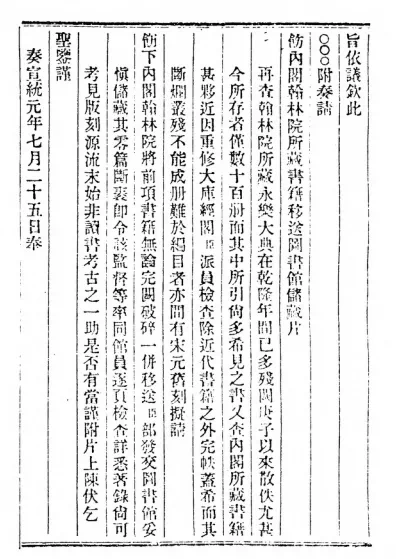 旨依議欽此
○○○附奏請
飭內閣翰林院所藏書籍移送圖書館儲藏片
再查翰林院所藏永樂大典在乾隆年間已多殘闕庚子以來散佚尤甚
今所存者僅數十百冊而其中所引尙多希見之書又查內閣所藏書籍
甚夥近因重修大庫經閣臣派員檢查除近代書籍之外完帙蓋希而其
斷爛叢殘不能成冊難於編目者亦間有宋元舊刻擬請
飭下內閣翰林院將前項書籍無論完闕破碎一併移送臣部發交圖書館妥
愼儲藏其零篇斷裹卽令該監督等率同館員逐頁檢查詳悉著錄尙可
考見版刻源流未始非讀書考古之一助是否有當謹附片上陳伏乞
聖鑒謹
奏宣統元年七月二十五日奉